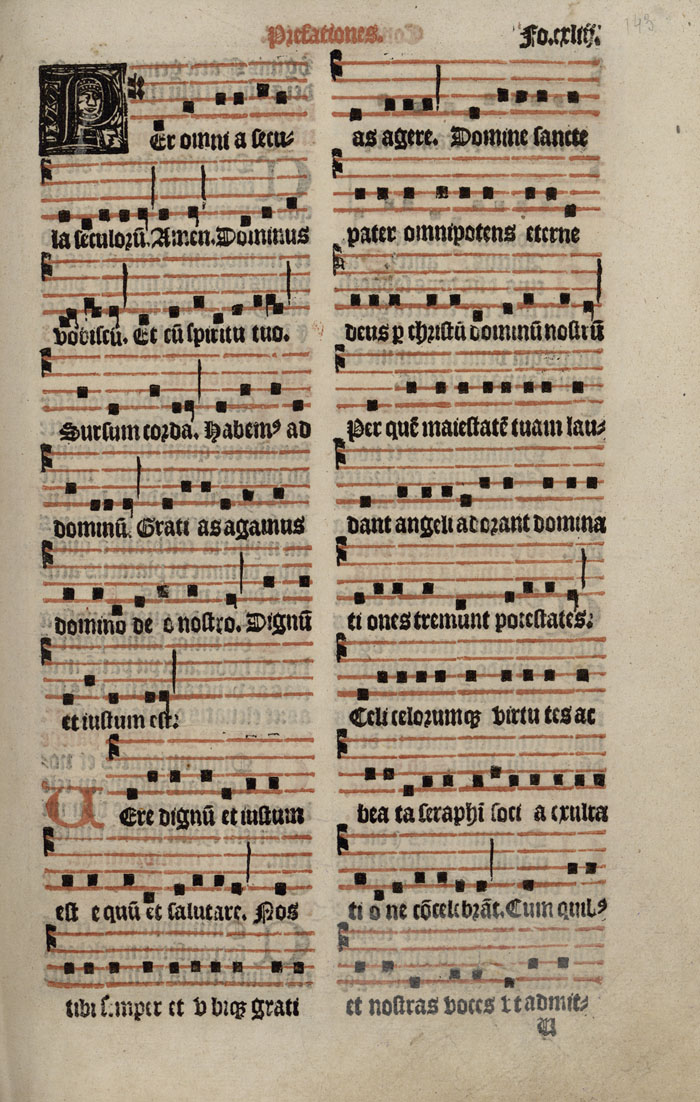 Prefationes.
Fo.cxliij.
143
PEr omni a secu-
la seculorū. Amen. Dominus
vobiscū. Et cū spiritu tuo.
Sursum corda. Habemꝰ ad
dominū. Grati as agamus
domino de o nostro. Dignū
et iustum est.
UEre dignū et iustum
est equū et salutare. Nos
tibi semper et vbiqꝫ grati
as agere. Domine sancte
pater omnipotens eterne
deus p christū dominū nostrū
Per quē maiestatē tuam lau-
dant angeli adorant domina
ti ones tremunt potestates.
Celi celorumqꝫ virtu tes ac
bea ta seraphī soci a exulta
ti o ne cōcelebrāt. Cum quibꝰ
et nostras voces vt admit-